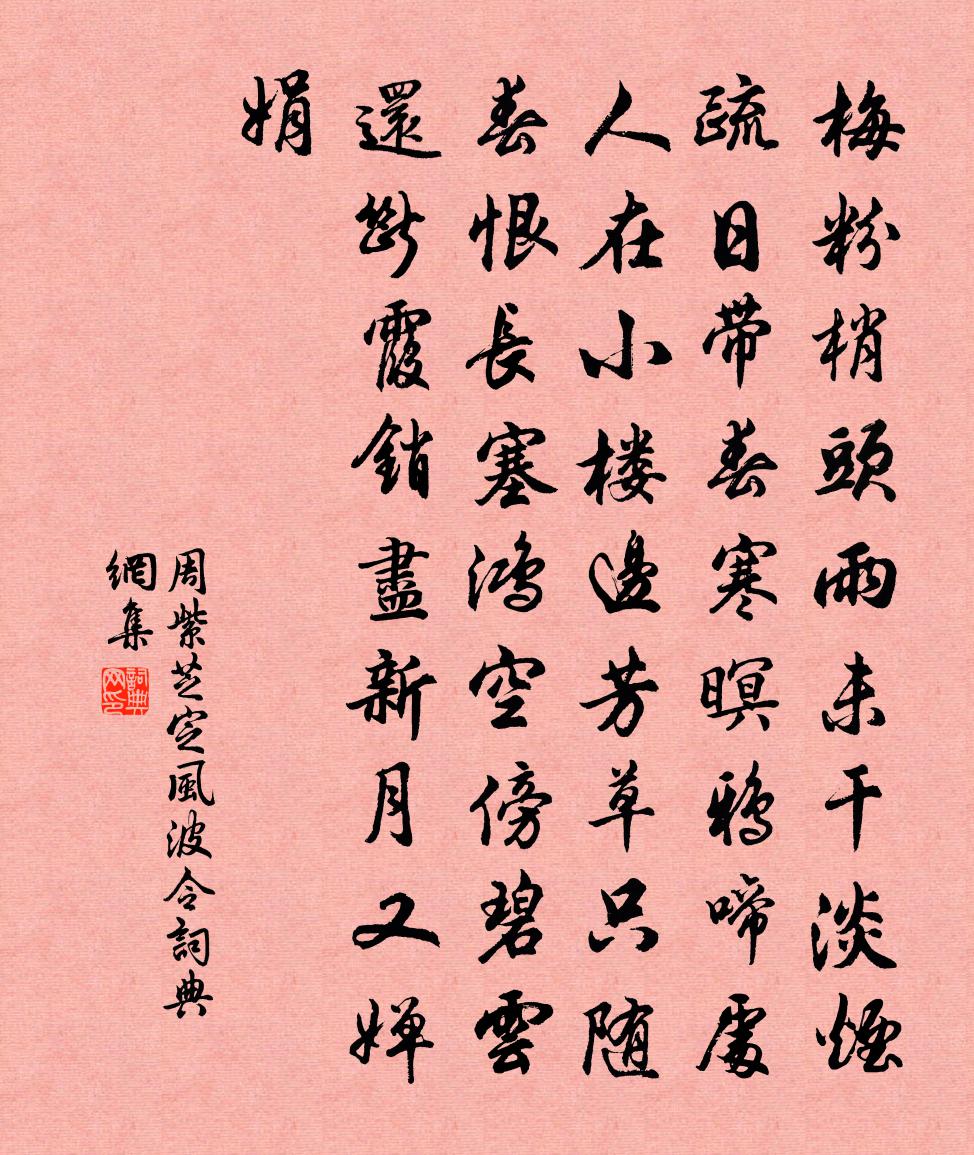 梅粉梢頭雨未干淡煙
疏日帶春寒暝鴉啼處
人在小楼邊芳草只随
春恨長塞鴻空傍碧雲
還斷霞銷盡新月又嬋
娟
周紫芝定風波令詞典
網集
詞典网印